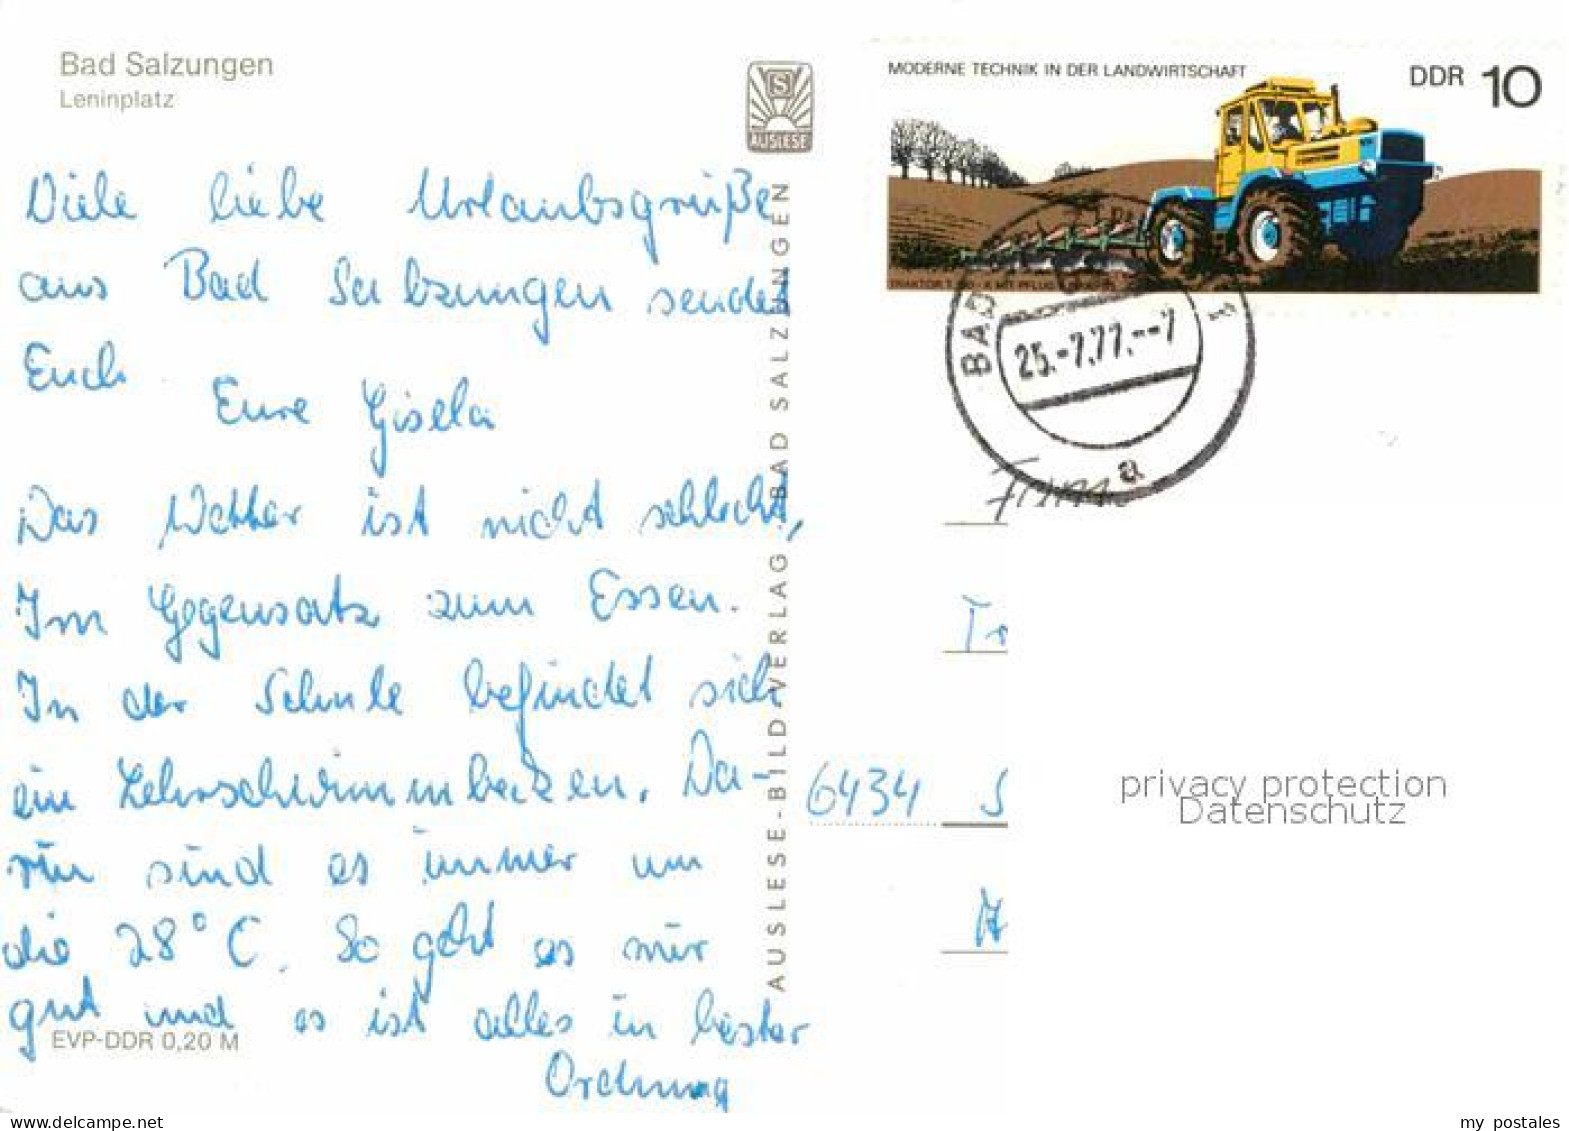 Bad Salzungen
Leninplatz
S
AUSLESE
MODERNE TECHNIK IN DER LANDWIRTSCHAFT
DDR 10
BAD
25.-7.77.--7
a
Viele liebe Urlaubsgrüße
aus Bad Salzungen sendet
Euch
Eure Gisela
Das Wetter ist nicht schlecht,
Im Gegensatz zum Essen.
In der Schule befindet sich
ein Lehrschwimmbecken. Da-
rin sind es immer um
die 28°C. So geht es mir
gut und es ist alles in bester
Ordnung
EVP-DDR 0,20 M
AUSLESE-BILD-VERLAG BAD SALZUNGEN
Fam
6434 S
privacy protection
Datenschutz
my postales
www.delcampe.net